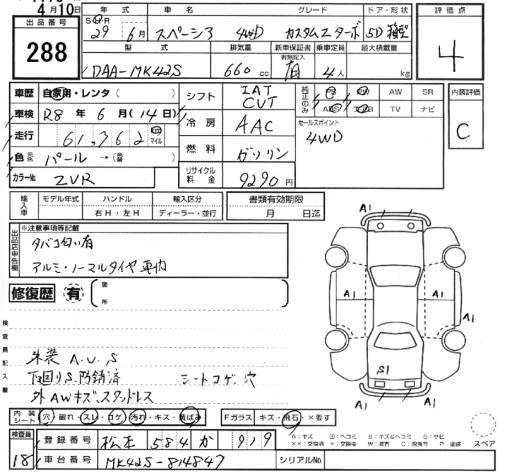 4月10日
出品番号
288
年式 車名 グレード ドア・形状 評価点
29年 6月 スペーシア 4WD カスタムZターボ 5D 箱型
4
型式 排気量 新車保証書 有無記入 乗車定員 最大積載量
DAA-MK42S 660cc 有 4人 kg
車歴 自家用・レンタ
車検 R8年 6月 (14日)
走行 61,362 km マイル
色 パール→(替)
カラーNo ZVR
シフト IAT CVT
冷房 AAC
燃料 ガソリン
リサイクル料金 9290円
純正のみ AW SR TV ナビ
セールスポイント
4WD
内装評価
C
輸入車 モデル年式 ハンドル 右H・左H 輸入区分 ディーラー・並行
書類有効期限
月 日迄
出品店申告欄 ※注意事項等記載
タバコ匂い有
アルミ・ノーマルタイヤ車内
修復歴 有 箇所
検査員記入欄
外装 A.U.S
下回りS.防錆済 シートコゲ.穴
外AWキズスタッドレス
A1
A1
A1
A1
A1
A1
S1
内装シート 穴・破れ・スレ・コゲ・汚れ・キズ・黄ばみ
Fガラス キズ・飛石・×要す
スペア
検査員
18
登録番号 松本 584 か 919
車台番号 MK42S-814847
シリアルNo.